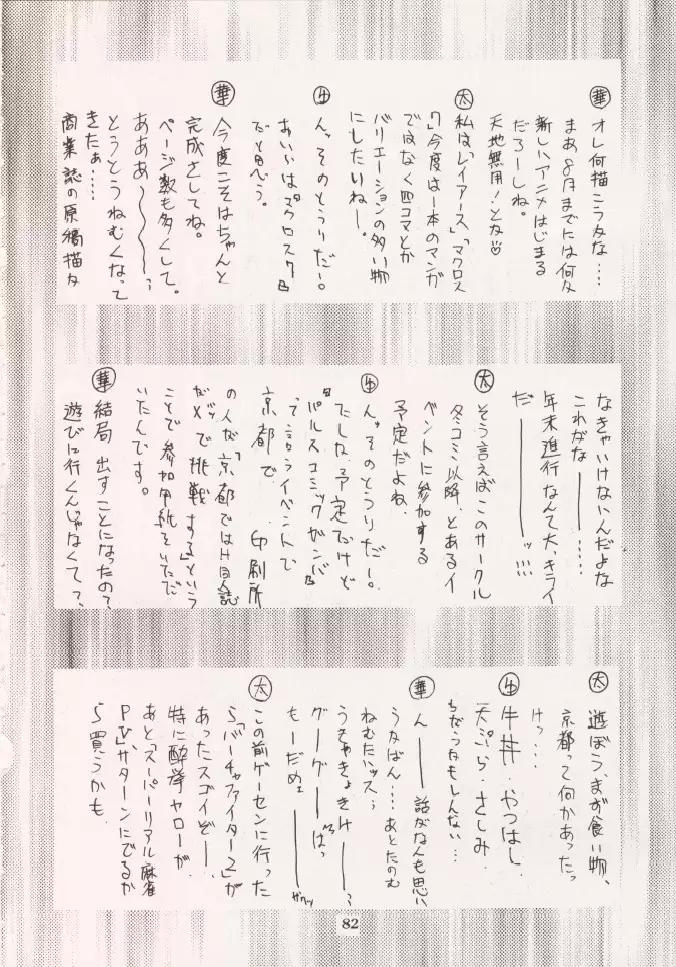 華 オレ何描こうかな……
まあ8月までには何か
新しいアニメはじまる
だろーしね。
天地無用!とか♡
太 私は「レイアース」「マクロス
7」今度は1本のマンガ
ではなく四コマとか
バリエーションの多い物
にしたいねー。
牛 んッそのとうりだー!。
あいいはマクロスク
だと思う。
華 今度こそはちゃんと
完成さしてね。
ページ数も多くして。
あああ〜〜〜
とうとうねむくなって
きたぁ……
商業誌の原稿描か
なきゃいけないんだよな
これがな――……
年末進行なんて大、キライ
だ――――ッ!!!
太 そう言えばこのサークル
冬コミ以降、とあるイ
ベントに参加する
予定だよね
牛 んッそのとうりだー!。
たしか、予定だけど
「パルスコミックガンバ」
って言うイベントで
京都で 印刷所
の人が「京都ではH同人誌
ダメで挑戦する」という
ことで参加用紙をいただ
いたんです。
華 結局 出すことになったの?
遊びに行くんじゃなくて?、
太 遊ぼう、まず食い物、
京都って何かあったっ
けっ……
牛 牛丼・やつはし、
天ぷら・さしみ
ちがうかもしんない…
華 ん――話がなんも思い
うかばん…あとたのむ
ねむたいッス
うきゃきょきけ――
グーグー――はっ
もーだめェ――
太 この前ゲーセンに行った
ら「バーチャファイター2」が
あったスゴイぞ――
特に酔拳ヤローが
あと「スーパーリアル麻雀
PV」サターンにでるか
ら買うかも
82